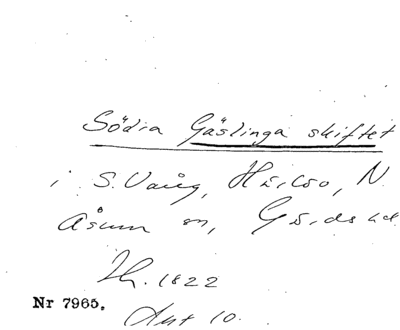 Södra Gäslinga skiftet
i S. Vång, Härlöv, N.
Åsum sn, Gärds hd.
Th. 1822
Nr 7965.
Akt 10.